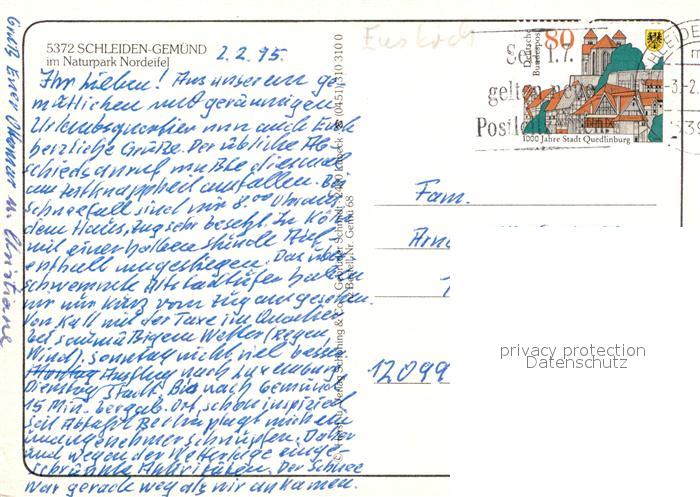 5372 SCHLEIDEN-GEMÜND
im Naturpark Nordeifel
2.2.95.
Ihr Lieben! Aus unserem ge-
mütlichen und geräumigen
Urlaubsquartier nun auch Euch
herzliche Grüße. Der übliche Ab-
schiedsanruf mußte diesmal
aus Zeitknappheit ausfallen. Bei
Schneefall sind wir 8.00 Uhr aus
dem Haus, Zug sehr besetzt. In Köln
mit einer halben Stunde Auf-
enthalt umgestiegen. Das über-
schwemmte Altstadtufer haben
wir nur kurz vom Zug aus gesehen.
Von Kall mit der Taxe ins Quartier
bei saumäßigem Wetter (Regen
Wind). Sonntag nicht viel besser
Montag Ausflug nach Luxemburg,
Dienstag Stadt. Bis nach Gemünd
15 Min. bergab. Ort schon inspiziert
Seit Abfahrt Berlin plagt mich ein
unangenehmer Schnupfen. Daher
und wegen der Wetterlage einge-
schränkte Aktivitäten. Der Schnee
war gerade weg als wir ankamen.
Grüße Euer Ottomar u. Christiane
Euskirch
Deutsche
Bundespost
80
1000 Jahre Stadt Quedlinburg
1.7.
gelten neue
Fam.
12099
privacy protection
Datenschutz